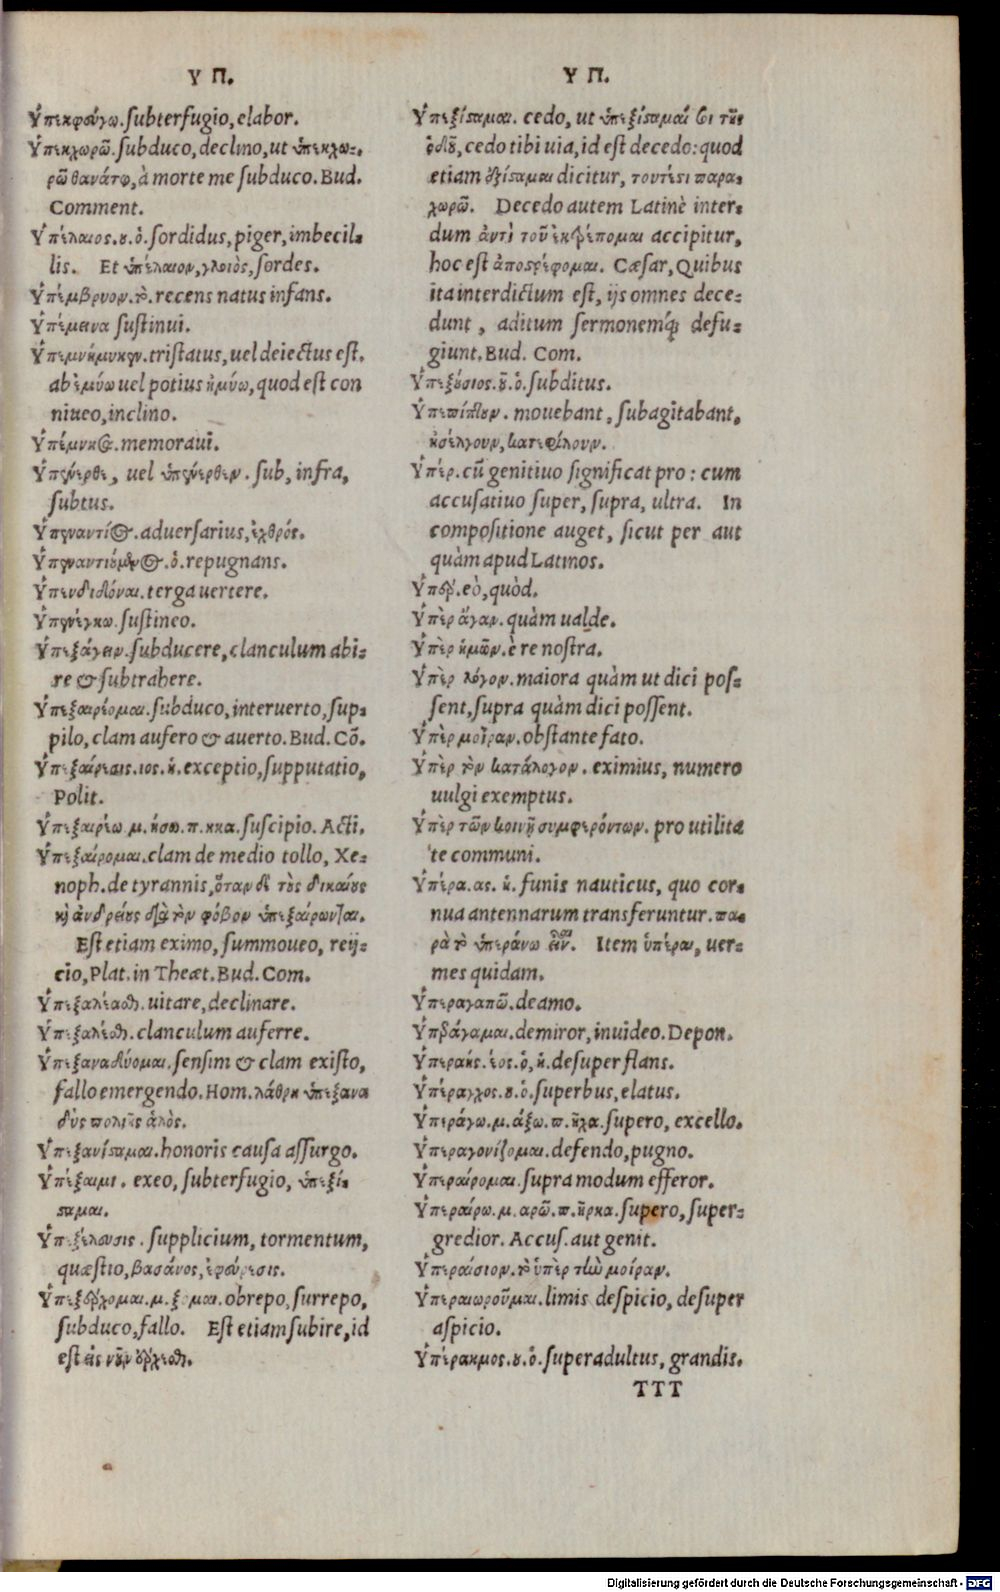 Υ Π.
Ὑπεκφεύγω. subterfugio, elabor.
Ὑπεκχωρῶ. subduco, declino, ut ὑπεκχω-
ρῶ θανάτῳ, à morte me subduco. Bud.
Comment.
Ὑπέλαιος. ου. ὁ. sordidus, piger, imbecil-
lis. Et ὑπέλαιον, γλοιὸς, sordes.
Ὑπέμβρυον. τὸ. recens natus infans.
Ὑπέμεινα sustinui.
Ὑπεμνήμυκεν. tristatus, uel deiectus est,
ab ἐμύω uel potius ἠμύω, quod est con
niueo, inclino.
Ὑπέμνησα. memoraui.
Ὑπένερθε, uel ὑπένερθεν. sub, infra,
subtus.
Ὑπεναντίος. aduersarius, ἐχθρός.
Ὑπεναντιούμενος. ὁ. repugnans.
Ὑπενδιδόναι. terga uertere.
Ὑπενέγκω. sustineo.
Ὑπεξάγειν. subducere, clanculum abi-
re & subtrahere.
Ὑπεξαιρέομαι. subduco, interuerto, sup-
pilo, clam aufero & auerto. Bud. Cō.
Ὑπεξαίρεσις. ιος. ἡ. exceptio, supputatio,
Polit.
Ὑπεξαιρέω. μ. ήσω. π. ηκα. suscipio. Acti.
Ὑπεξαίρομαι. clam de medio tollo, Xe-
noph. de tyrannis, ὅταν δὲ τοὺς δικαίους
καὶ ἀνδρείους διὰ τὸν φόβον ὑπεξαίρωνται.
Est etiam eximo, summoueo, reij-
cio, Plat. in Theæt. Bud. Com.
Ὑπεξαλέασθαι. uitare, declinare.
Ὑπεξαλέσθαι. clanculum auferre.
Ὑπεξαναδύομαι. sensim & clam existo,
fallo emergendo. Hom. λάθρη ὑπεξανα
δὺς πολιῆς ἁλὸς.
Ὑπεξανίσταμαι. honoris causa assurgo.
Ὑπέξειμι. exeo, subterfugio, ὑπεξί-
σταμαι.
Ὑπεξέλευσις. supplicium, tormentum,
quæstio, βασάνος, ἐφεύρεσις.
Ὑπεξέρχομαι. μ. ξομαι. obrepo, surrepo,
subduco, fallo. Est etiam subire, id
est εἰς νοῦν ἔρχεσθαι.
Υ Π.
Ὑπεξίσταμαι. cedo, ut ὑπεξίσταμαί σοι τῆς
ὁδοῦ, cedo tibi uia, id est decedo: quod
etiam ἐξίσταμαι dicitur, τουτέστι παρα-
χωρῶ. Decedo autem Latinè inter-
dum ἀντὶ τοῦ ἐκτρέπομαι accipitur,
hoc est ἀποστρέφομαι. Cæsar, Quibus
ita interdictum est, ijs omnes dece-
dunt, aditum sermonemq́; defu-
giunt. Bud. Com.
Ὑπεξούσιος. ου. ὁ. subditus.
Ὑπεπίπτουν. mouebant, subagitabant,
ἠσέλγουν, κατεφίλουν.
Ὑπέρ. cū genitiuo significat pro: cum
accusatiuo super, supra, ultra. In
compositione auget, sicut per aut
quàm apud Latinos.
Ὑπὲρ. eò, quòd.
Ὑπὲρ ἄγαν. quàm ualde.
Ὑπὲρ ἡμῶν. è re nostra.
Ὑπὲρ λόγον. maiora quàm ut dici pos-
sent, supra quàm dici possent.
Ὑπὲρ μοῖραν. obstante fato.
Ὑπὲρ τὸν κατάλογον. eximius, numero
uulgi exemptus.
Ὑπὲρ τῶν κοινῇ συμφερόντων. pro utilita
te communi.
Ὑπέρα. ας. ἡ. funis nauticus, quo cor-
nua antennarum transferuntur. πα-
ρὰ τὸ ὑπεράνω εἶναι. Item ὑπέραι, uer-
mes quidam.
Ὑπεραγαπῶ. deamo.
Ὑπεράγαμαι. demiror, inuideo. Depon.
Ὑπεραής. έος. ὁ, ἡ. desuper flans.
Ὑπέραγχος. ου. ὁ. superbus, elatus.
Ὑπεράγω. μ. άξω. π. ῆχα. supero, excello.
Ὑπεραγονίζομαι. defendo, pugno.
Ὑπεραίρομαι. supra modum efferor.
Ὑπεραίρω. μ. αρῶ. π. ῆρκα. supero, super-
gredior. Accus. aut genit.
Ὑπεραίσιον. τὸ ὑπὲρ τὴν μοίραν.
Ὑπεραιωροῦμαι. limis despicio, desuper
aspicio.
Ὑπέρακμος. ου. ὁ. superadultus, grandis.
TTT
Digitalisierung gefördert durch die Deutsche Forschungsgemeinschaft - DFG